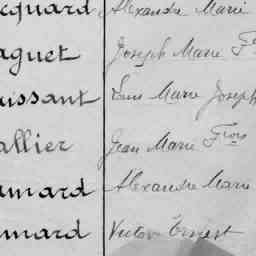 cquard Alexandre Marie
aguet Joseph Marie F
issant Louis Marie Joseph
allier Jean Marie Frois
mard Alexandre Marie
mard Victor Ernest